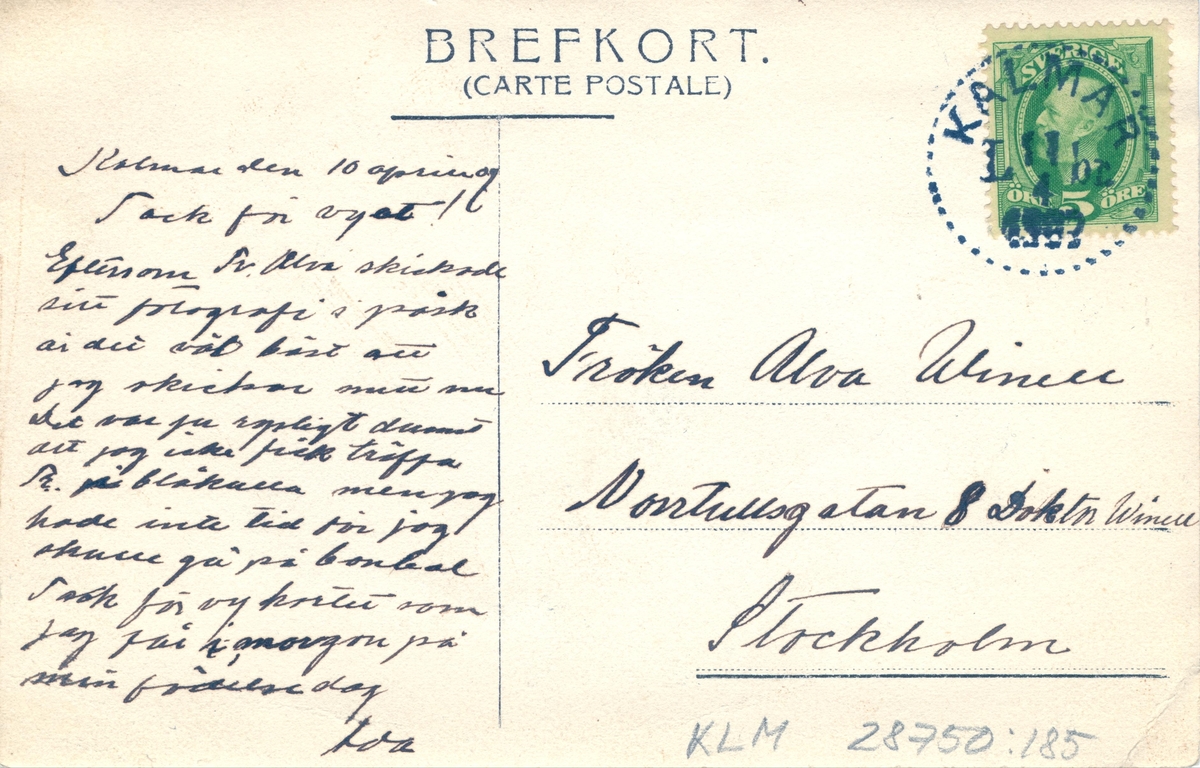 BREFKORT.
(CARTE POSTALE)
SVERIGE
ÖRE 5 ÖRE
KALMAR
11
4
1907
Kalmar den 10 april 07
Tack för vyet!
Eftersom Fr. Alva skickade
sitt fotografi i påsk
är det väl bäst att
jag skickar mitt nu
Det var ju rysligt dumt
att jag icke fick träffa
Fr. på blåkulla men jag
hade inte tid för jag
skulle gå på bonbal
Tack för vykortet som
jag får i morgon på
min födelsedag
Fröken Alva Winell
Norrtullsgatan 8 Doktor Winell
Stockholm
KLM 28750:185